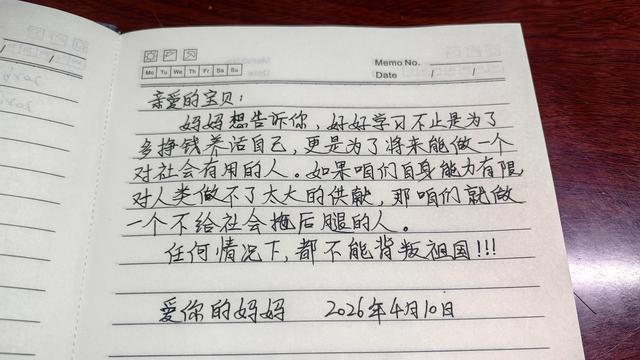 Memo No.
Mo Tu We Th Fr Sa Su
Date / /
亲爱的宝贝：
妈妈想告诉你，好好学习不止是为了
多挣钱养活自己，更是为了将来能做一个
对社会有用的人。如果咱们自身能力有限
对人类做不了太大的供献，那咱们就做
一个不给社会拖后腿的人。
任何情况下，都不能背叛祖国！！！
爱你的妈妈 2026年4月10日